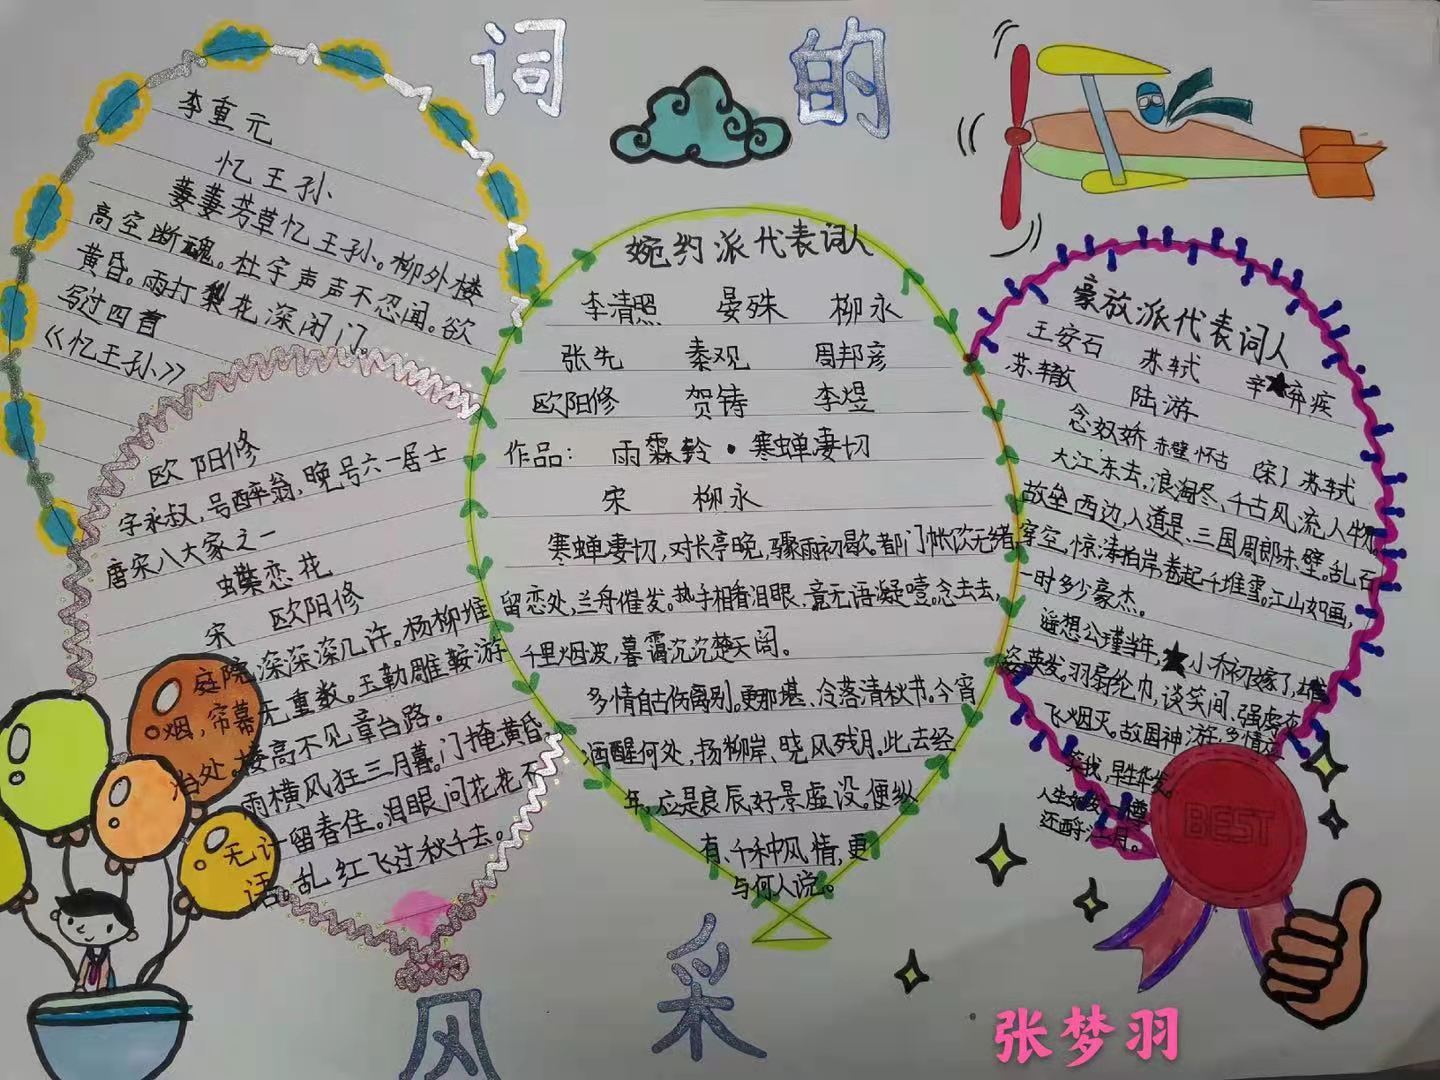 词的
风采
李重元
忆王孙
萋萋芳草忆王孙。柳外楼
高空断魂。杜宇声声不忍闻。欲
黄昏。雨打梨花深闭门。
写过四首
《忆王孙》
欧阳修
字永叔,号醉翁,晚号六一居士
唐宋八大家之一
蝶恋花
宋 欧阳修
庭院深深深几许。杨柳堆
烟,帘幕无重数。玉勒雕鞍游
冶处。楼高不见章台路。
雨横风狂三月暮。门掩黄昏。
无计留春住。泪眼问花花不
语。乱红飞过秋千去。
婉约派代表词人
李清照 晏殊 柳永
张先 秦观 周邦彦
欧阳修 贺铸 李煜
作品: 雨霖铃·寒蝉凄切
宋 柳永
寒蝉凄切,对长亭晚,骤雨初歇。都门帐饮无绪,
留恋处,兰舟催发。执手相看泪眼、竟无语凝噎。念去去,
千里烟波,暮霭沉沉楚天阔。
多情自古伤离别。更那堪、冷落清秋节。今宵
酒醒何处,杨柳岸、晓风残月。此去经
年,应是良辰、好景虚设。便纵
有、千种风情,更
与何人说。
豪放派代表词人
王安石 苏轼 辛弃疾
苏辙 陆游
念奴娇 赤壁怀古 (宋) 苏轼
大江东去,浪淘尽、千古风流人物。
故垒西边,人道是、三国周郎赤壁。乱石
穿空,惊涛拍岸,卷起千堆雪。江山如画,
一时多少豪杰。
遥想公瑾当年,小乔初嫁了,雄
姿英发。羽扇纶巾,谈笑间、强虏灰
飞烟灭。故国神游,多情应
笑我,早生华发。
人生如梦,一樽
还酹江月。
BEST
张梦羽